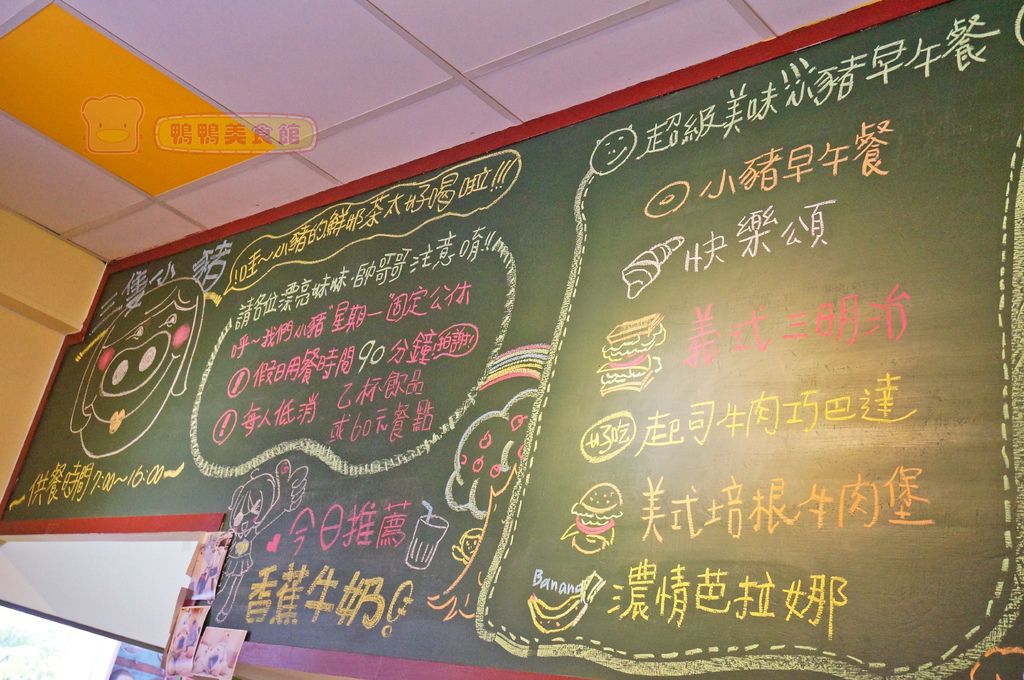 鴨鴨美食館
三隻小豬
哇~小豬的鮮奶茶太好喝啦!!!
請各位漂亮妹妹、帥哥哥注意唷!!
呼~我們小豬"星期一"固定公休
! 假日用餐時間90分鐘 謝謝
! 每人低消 乙杯飲品
或60元餐點
供餐時間7:00~16:00~
今日推薦
香蕉牛奶
超級美味 小豬早午餐
小豬早午餐
快樂頌
美式三明治
好吃 起司牛肉巧巴達
美式培根牛肉堡
Banana 濃情芭拉娜